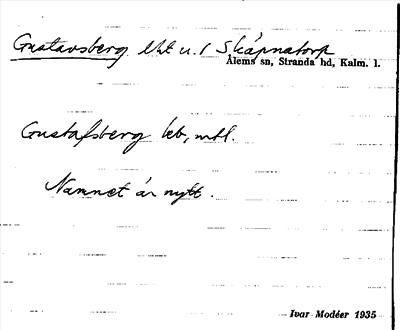 Gustavsberg lht u. / Skäpnatorp
Ålems sn, Stranda hd, Kalm. l.
Gustafsberg leb, mtl.
Namnet är nytt.
Ivar Modéer 1935